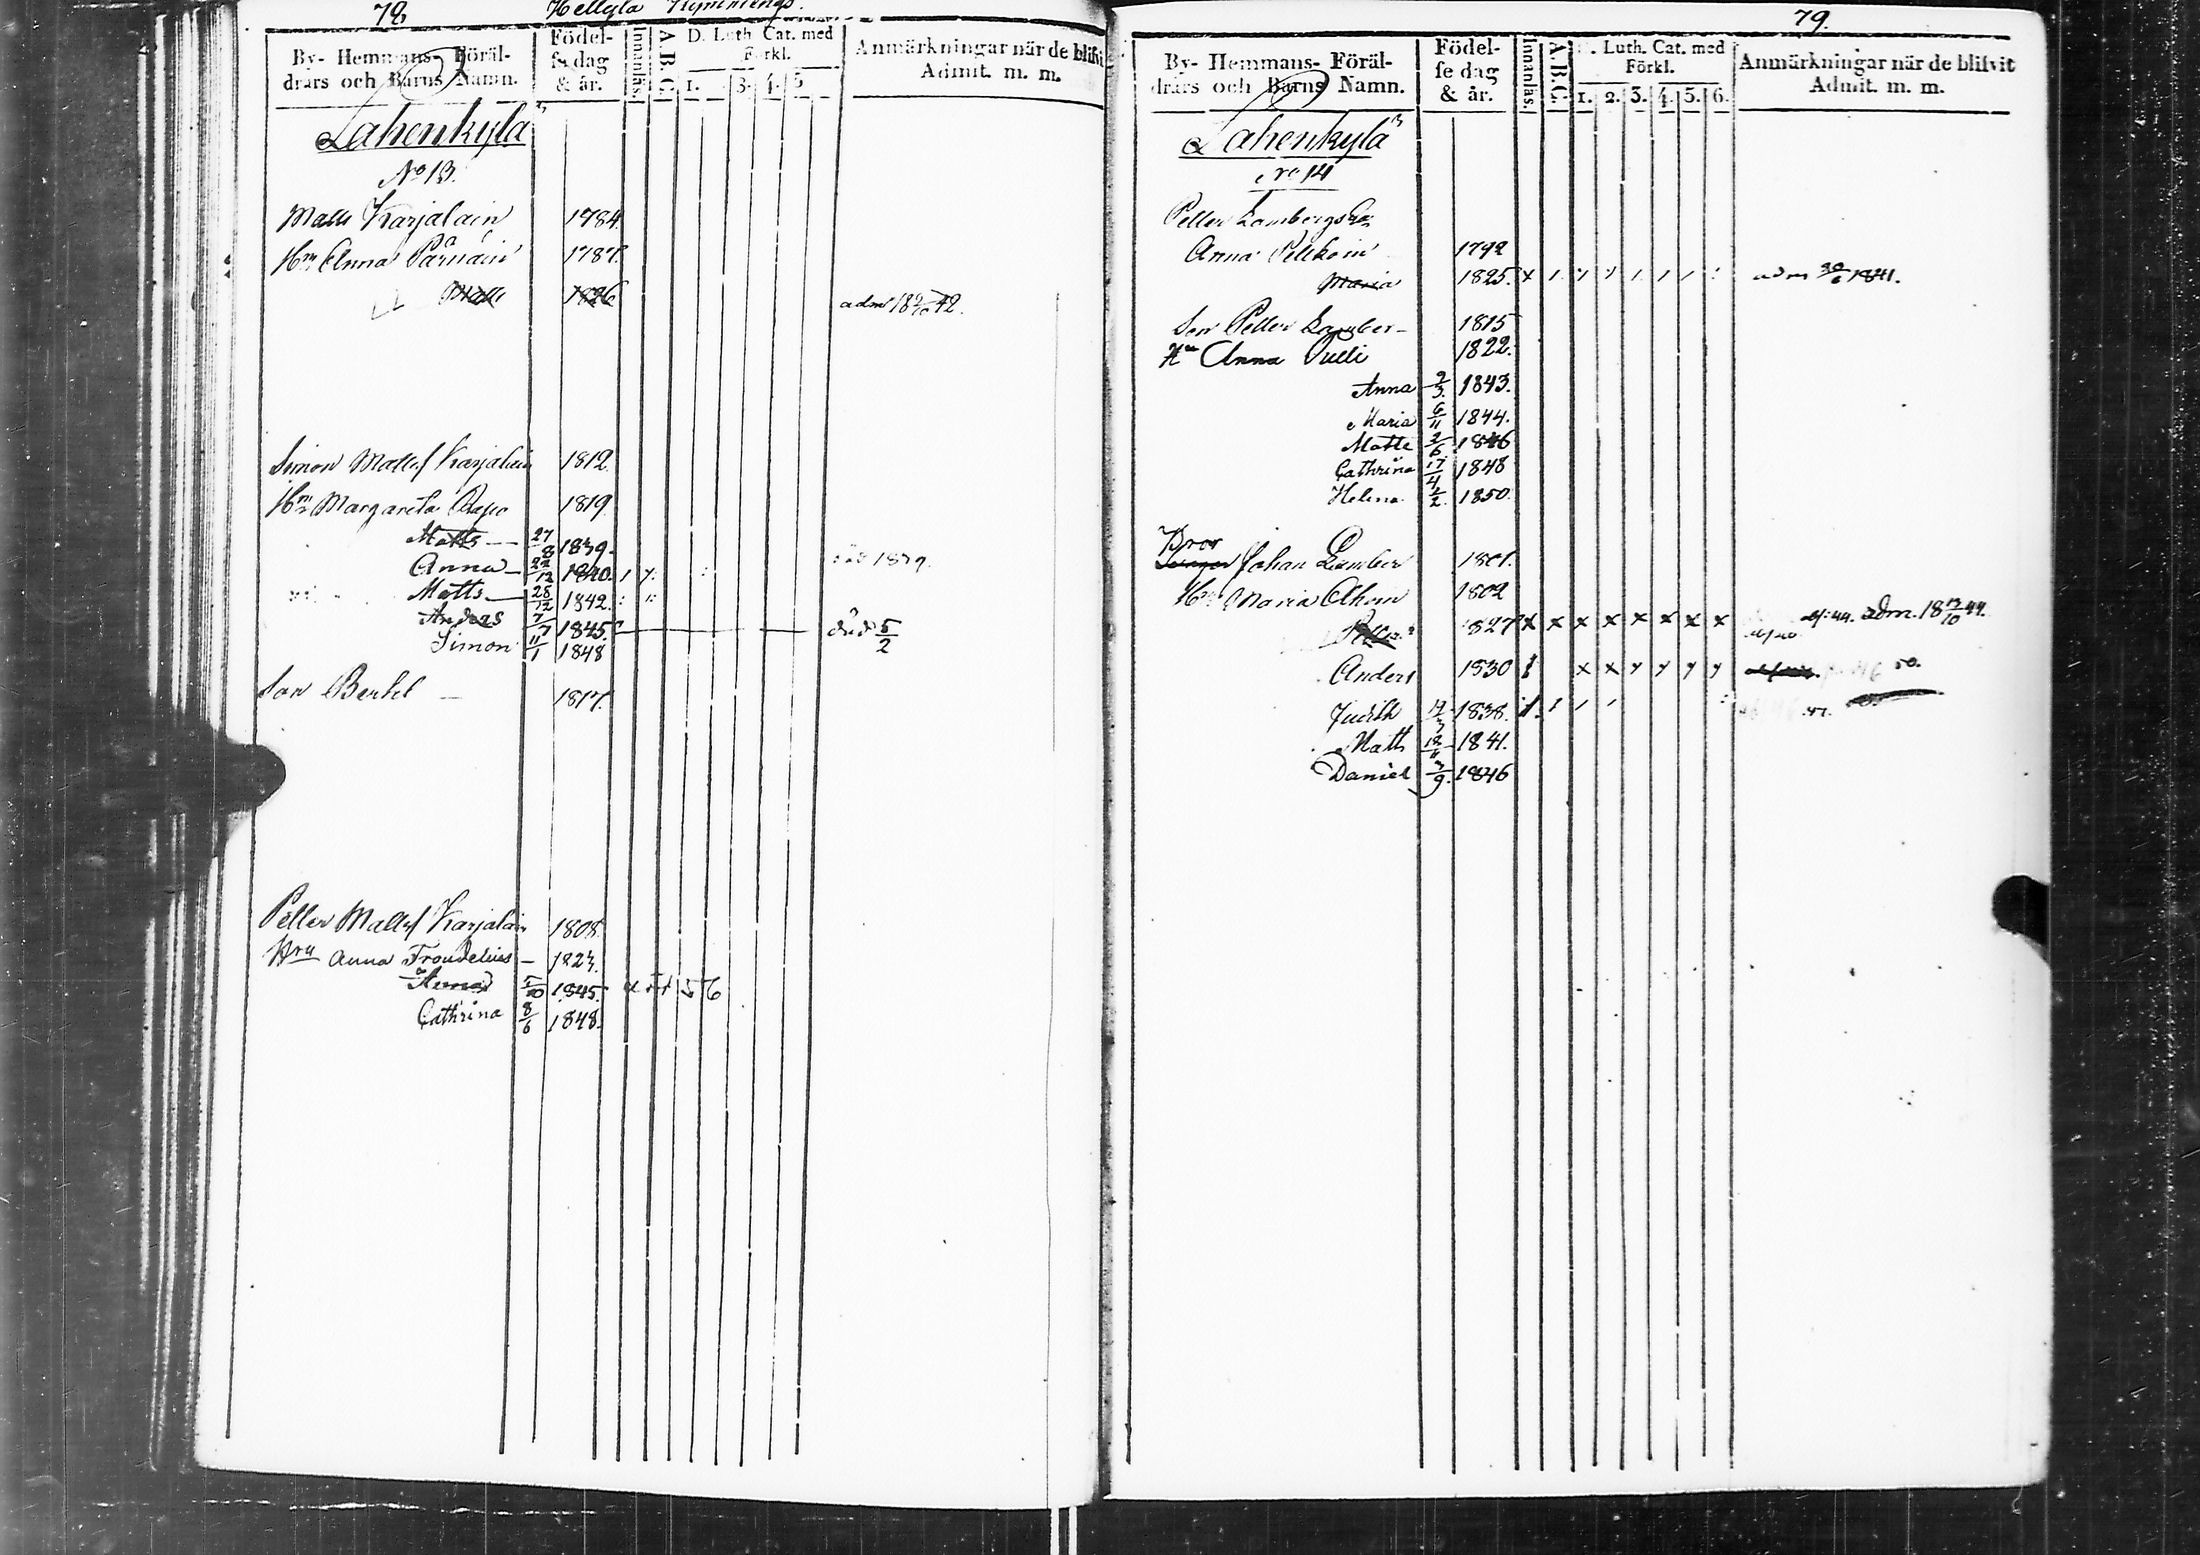 78
Hellylä Kymmengs.
By- Hemmans- Föräl-
drars och Barns Namn.
Födel-
se dag
& år.
Innanläs.
A.B.C.
D. Luth. Cat. med
Förkl.
1. 3. 4. 5
Anmärkningar när de blifvit
Admit. m. m.
Lahenkylä
No 13.
Matts Karjalain 1784.
Hu Anna Pärnäin 1787.
Matts 1826 adm 18 42.
Simon Mattsf Karjalain 1812.
Hu Margareta Repo 1819
Matts 27/8 1839. död 1839.
Anna 22/12 1840.
Matts 28/12 1842.
Anders 7/7 1845. död 5/2
Simon 11/1 1848
Son Bertel 1817.
Petter Mattsf Karjalain 1808.
Hru Anna Troudelius 1823.
Anna 5/10 1845.
Cathrina 8/6 1848.
79.
By- Hemmans- Föräl-
drars och Barns Namn.
Födel-
se dag
& år.
Innanläs.
A.B.C.
D. Luth. Cat. med
Förkl.
1. 2. 3. 4. 5. 6.
Anmärkningar när de blifvit
Admit. m. m.
Lahenkylä
No 14
Petter Lambergs
Anna Pelikoin 1792
Maria 1825. x adm 30/6 1841.
Son Petter Lamber 1815
Hu Anna Pulli 1822.
Anna 2/3. 1843.
Maria 6/11 1844.
Matte 2/6 1846
Cathrina 17/4 1848
Helena 2/2. 1850.
Bror
Johan Lamber 1801.
Hu Maria Olkoin 1802
Petter 1827 x x x x x x x x 44. adm. 18 44.
Anders 1830 x x y y y y 50.
Judith 1838.
Matts 1841.
Daniel 3/9. 1846